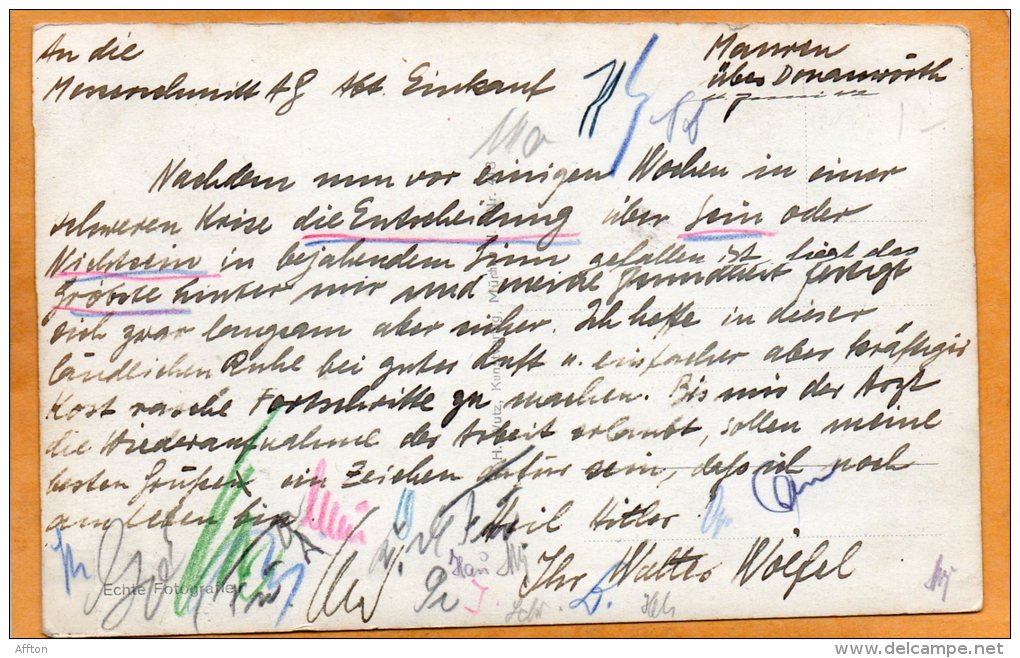 An die
Messerschmitt AG Abt. Einkauf
Mauren
über Donauwörth
Nachdem nun vor einigen Wochen in einer
schweren Krise die Entscheidung über Sein oder
Nichtsein in bejahendem Sinn gefallen ist liegt das
Gröbste hinter mir und meine Gesundheit festigt
sich zwar langsam aber sicher. Ich hoffe in dieser
ländlichen Ruhe bei guter Luft u. einfacher aber kräftiger
Kost rasche Fortschritte zu machen. Bis mir der Arzt
die Wiederaufnahme der Arbeit erlaubt, sollen meine
besten Grüße ein Zeichen dafür sein, daß ich noch
am Leben bin.
Heil Hitler
Ihr Walter Wölfel
Echte Fotografie
Affton
www.delcampe.net